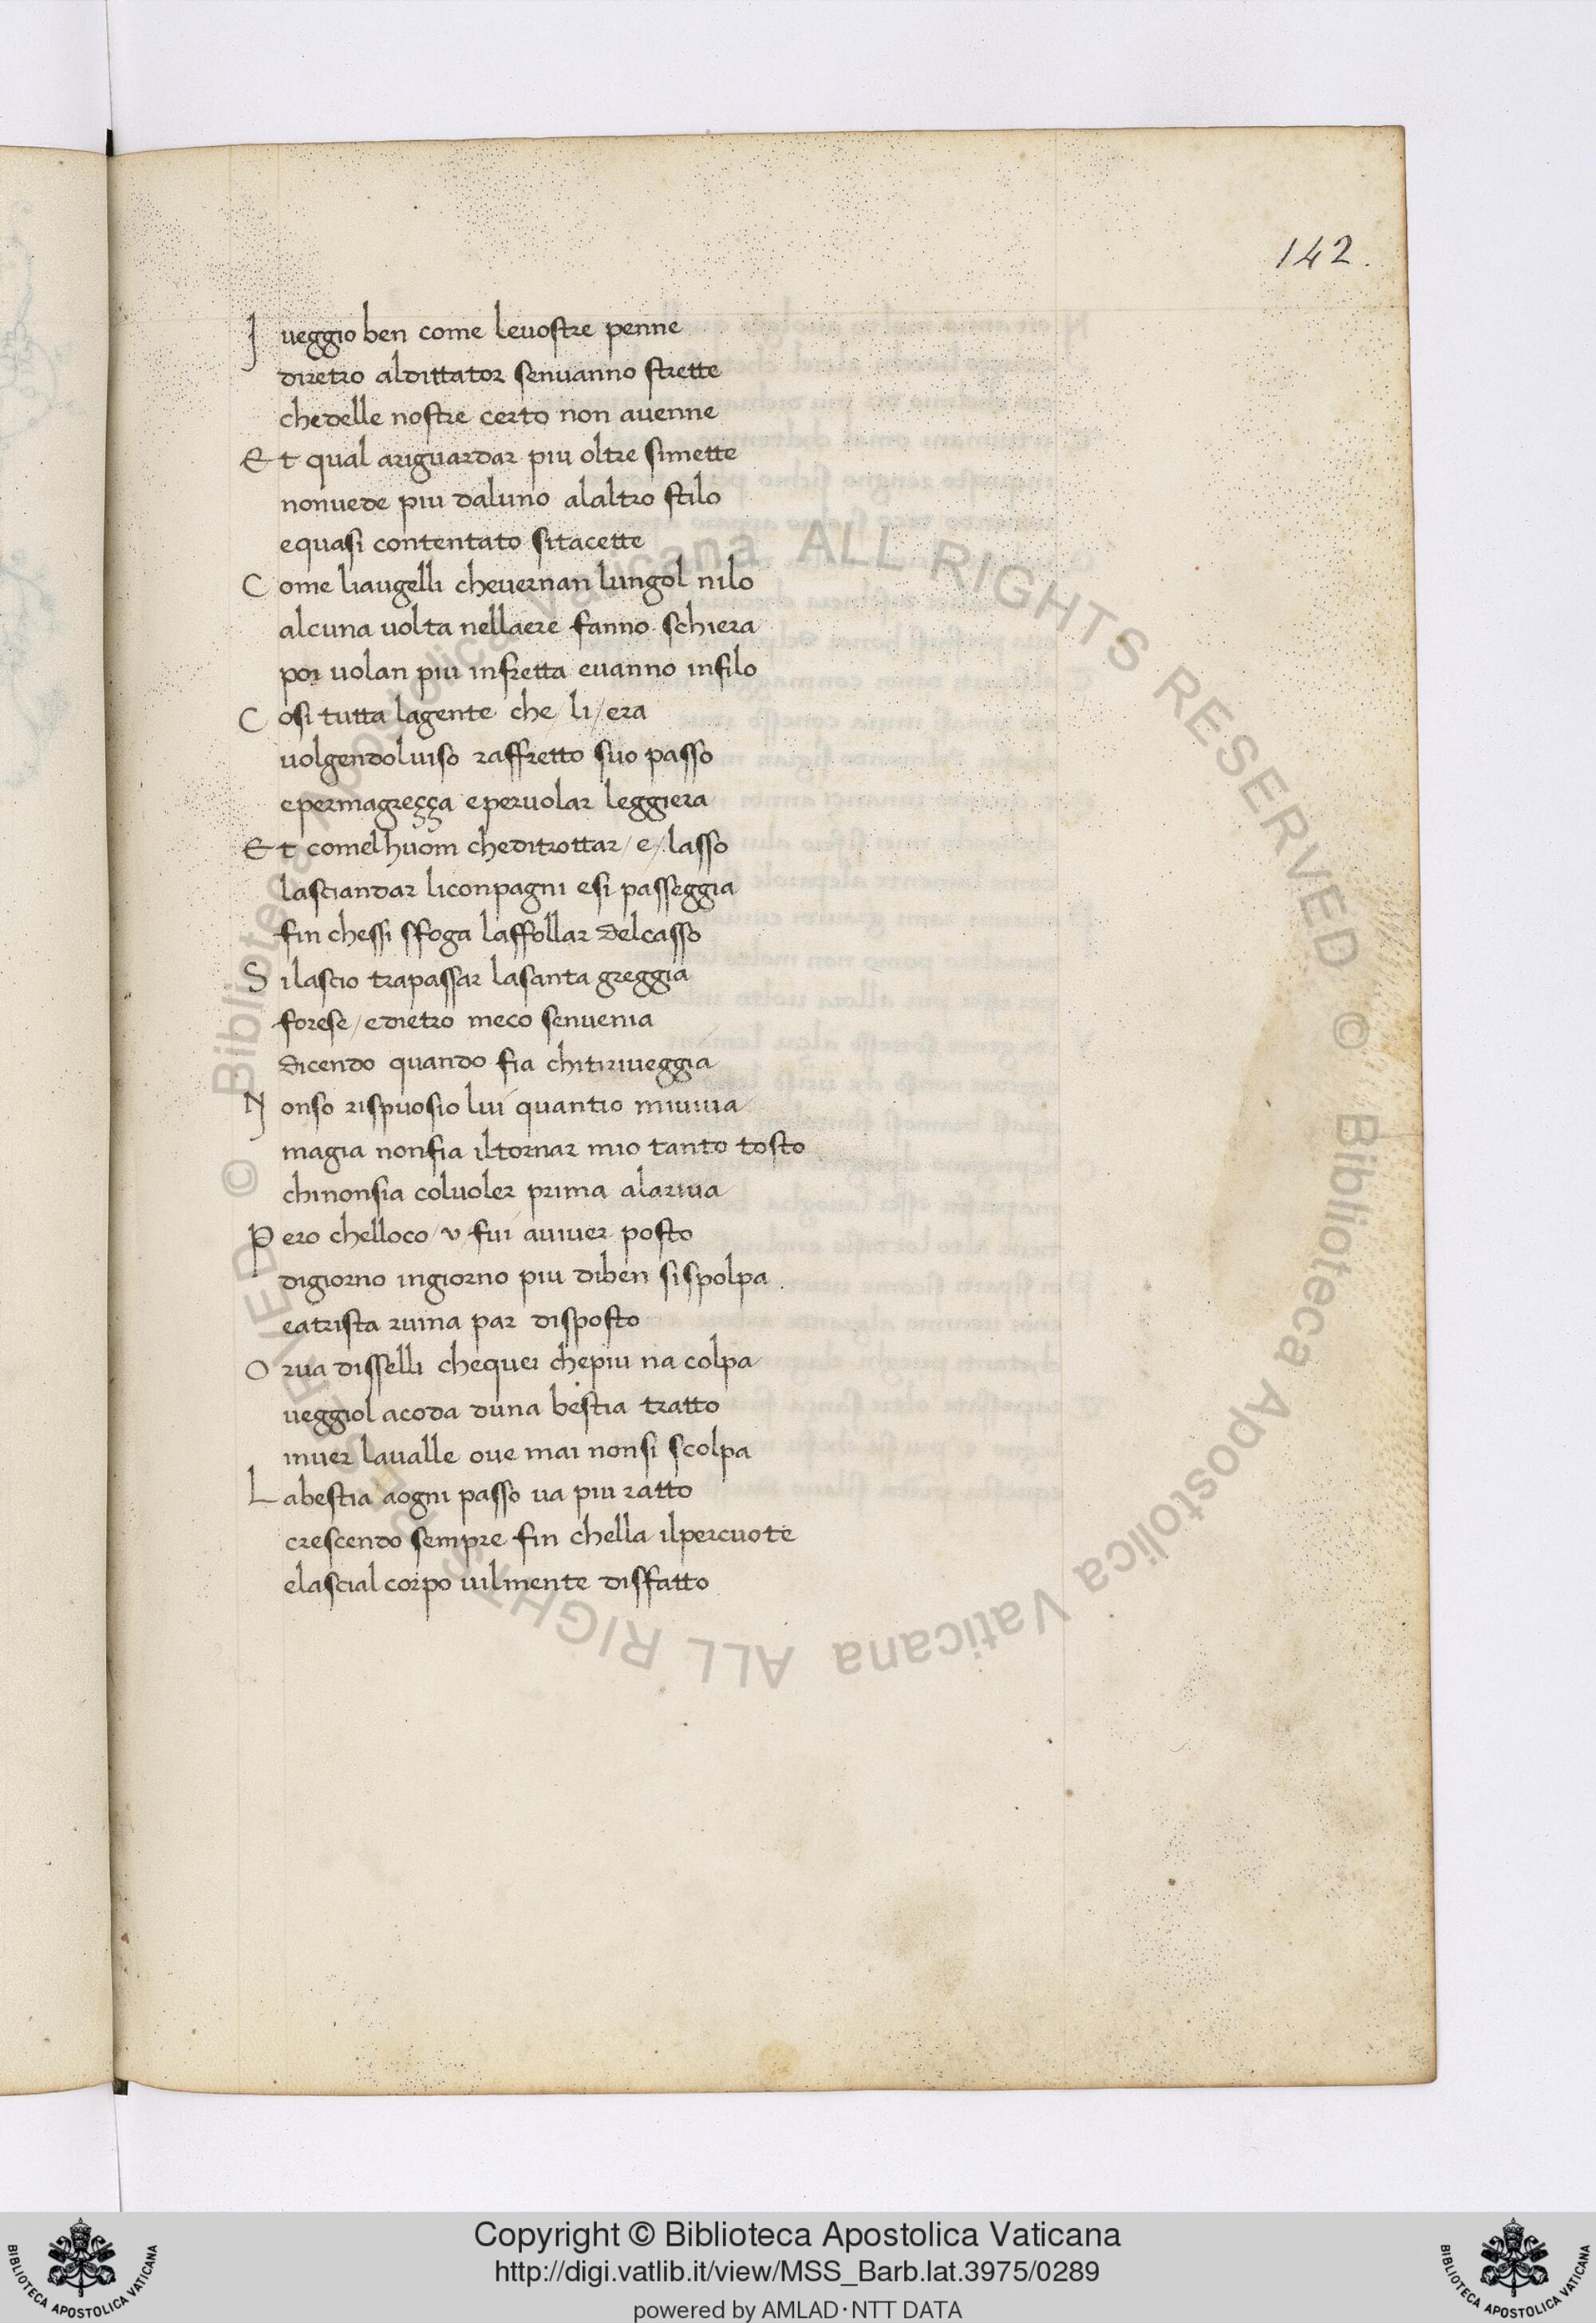 142.
I ueggio ben come leuostre penne
diretro aldittator senuanno strette
chedelle nostre certo non auenne
Et qual ariguardar piu oltre simette
nonuede piu daluno alaltro stilo
equasi contentato sitacette
Come liaugelli cheuernan lungol nilo
alcuna uolta nellaere fanno schiera
poi uolan piu infretta euanno infilo
Cosi tutta lagente che / li / era
uolgendoluiso raffretto suo passo
epermagreçça eperuolar leggiera
Et comelhuom cheditrottar / e / lasso
lasciandar liconpagni esi passeggia
fin chessi sfoga laffollar delcasso
Si lascio trapassar lasanta greggia
forese / edietro meco senuenia
dicendo quando fia chitiriueggia
Nonso rispuosio lui quantio miuiua
magia nonfia iltornar mio tanto tosto
chinonsia coluoler prima alariua
Pero chelloco / u / fui auiuer posto
digiorno ingiorno piu diben sispolpa
eatrista ruina par disposto
Orua disselli chequei chepiu na colpa
ueggiol acoda duna bestia tratto
inuer laualle oue mai nonsi scolpa
Labestia aogni passo ua piu ratto
crescendo sempre fin chella ilpercuote
elascial corpo uilmente disfatto
© Biblioteca Apostolica Vaticana ALL RIGHTS RESERVED © Biblioteca Apostolica Vaticana ALL RIGHTS RESERVED
Copyright © Biblioteca Apostolica Vaticana
http://digi.vatlib.it/view/MSS_Barb.lat.3975/0289
powered by AMLAD·NTT DATA
BIBLIOTECA APOSTOLICA VATICANA
BIBLIOTECA APOSTOLICA VATICANA